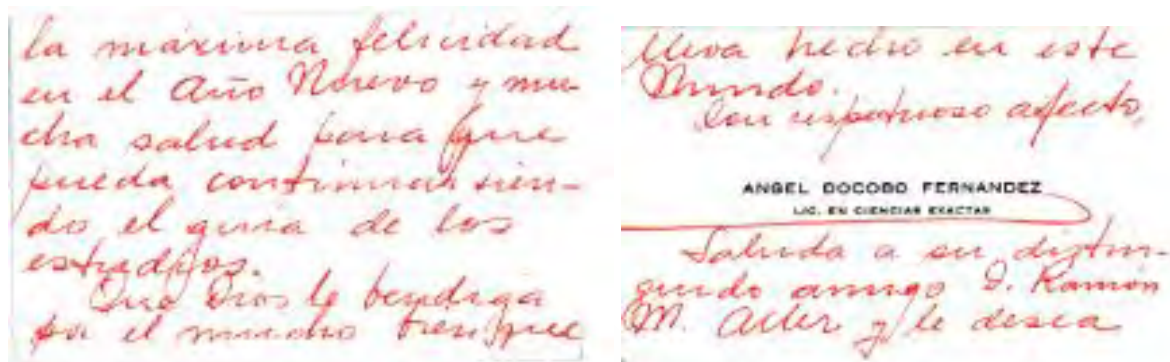 la máxima felicidad
en el Año Nuevo y mu-
cha salud para que
pueda continuar sien-
do el guía de los
estradjos.
Que Dios le bendiga
por el mucho bien que
lleva hecho en este
Mundo.
Con respetuoso afecto,
ANGEL DOCOBO FERNANDEZ
LIC. EN CIENCIAS EXACTAS
Saluda a su distin-
guido amigo D. Ramón
M. Aller y le desea